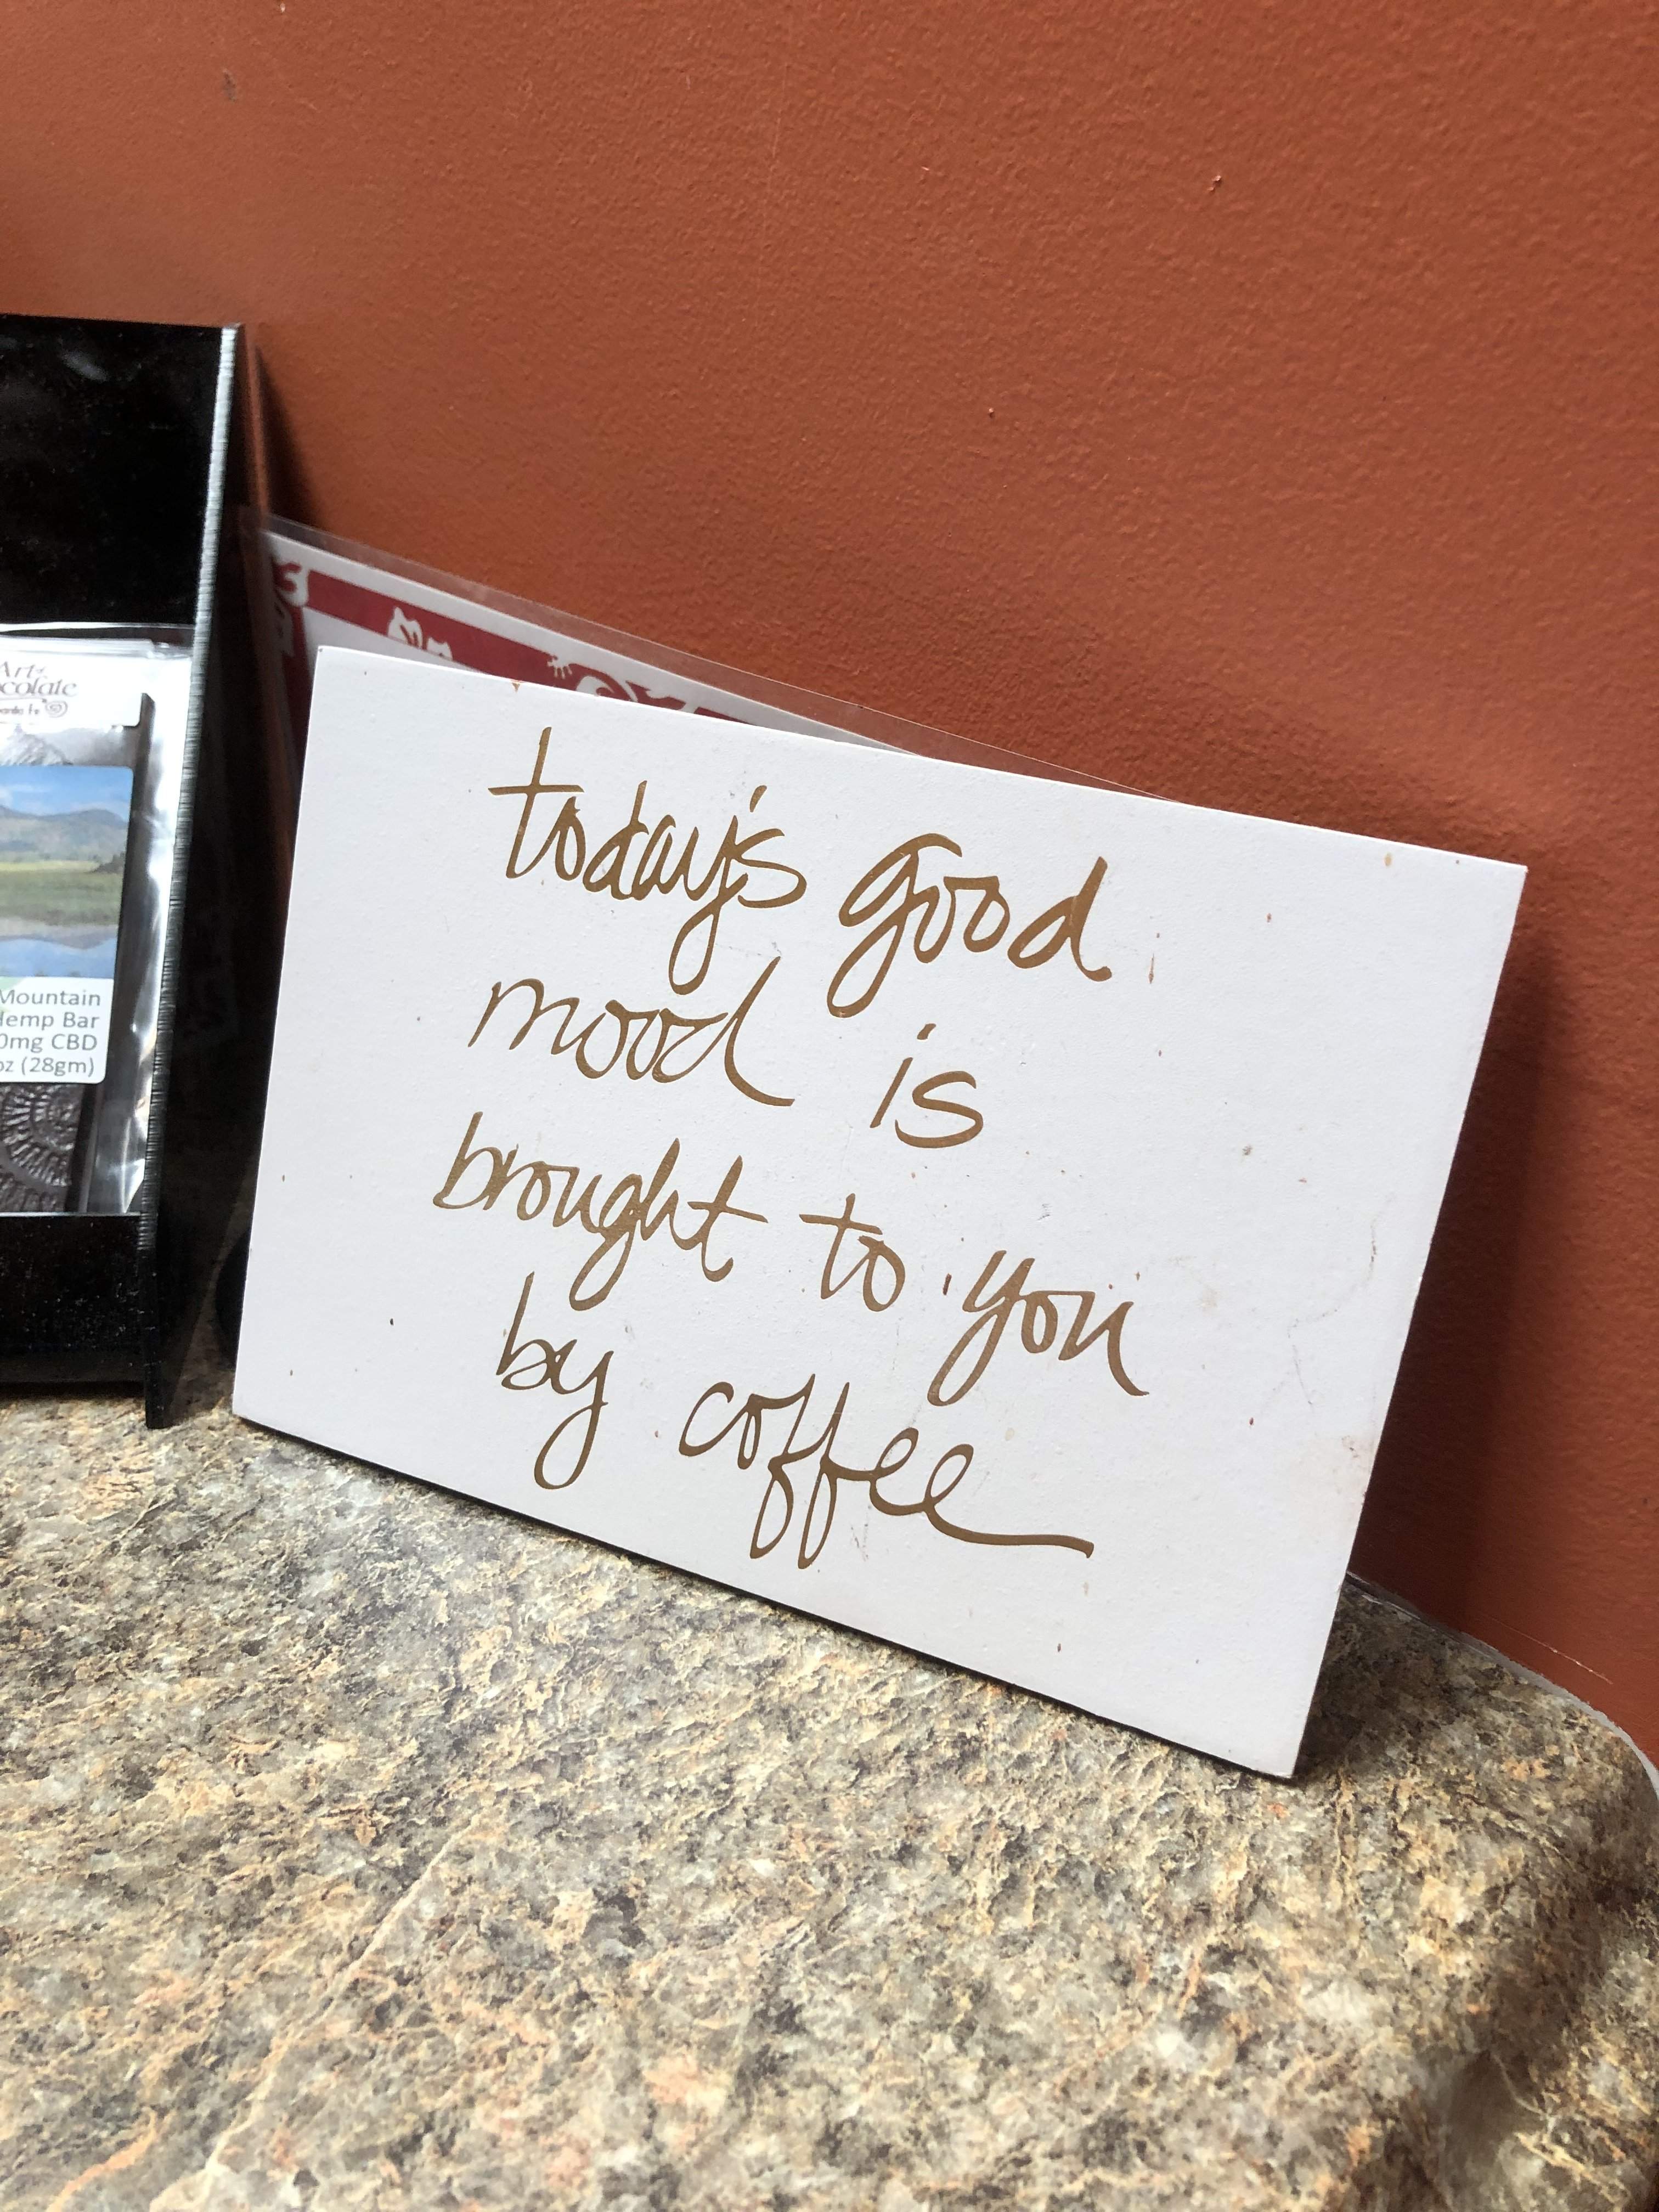 today's good
mood is
brought to you
by coffee
Art of
Santa Fe
Mountain
Hemp Bar
CBD
oz (28gm)